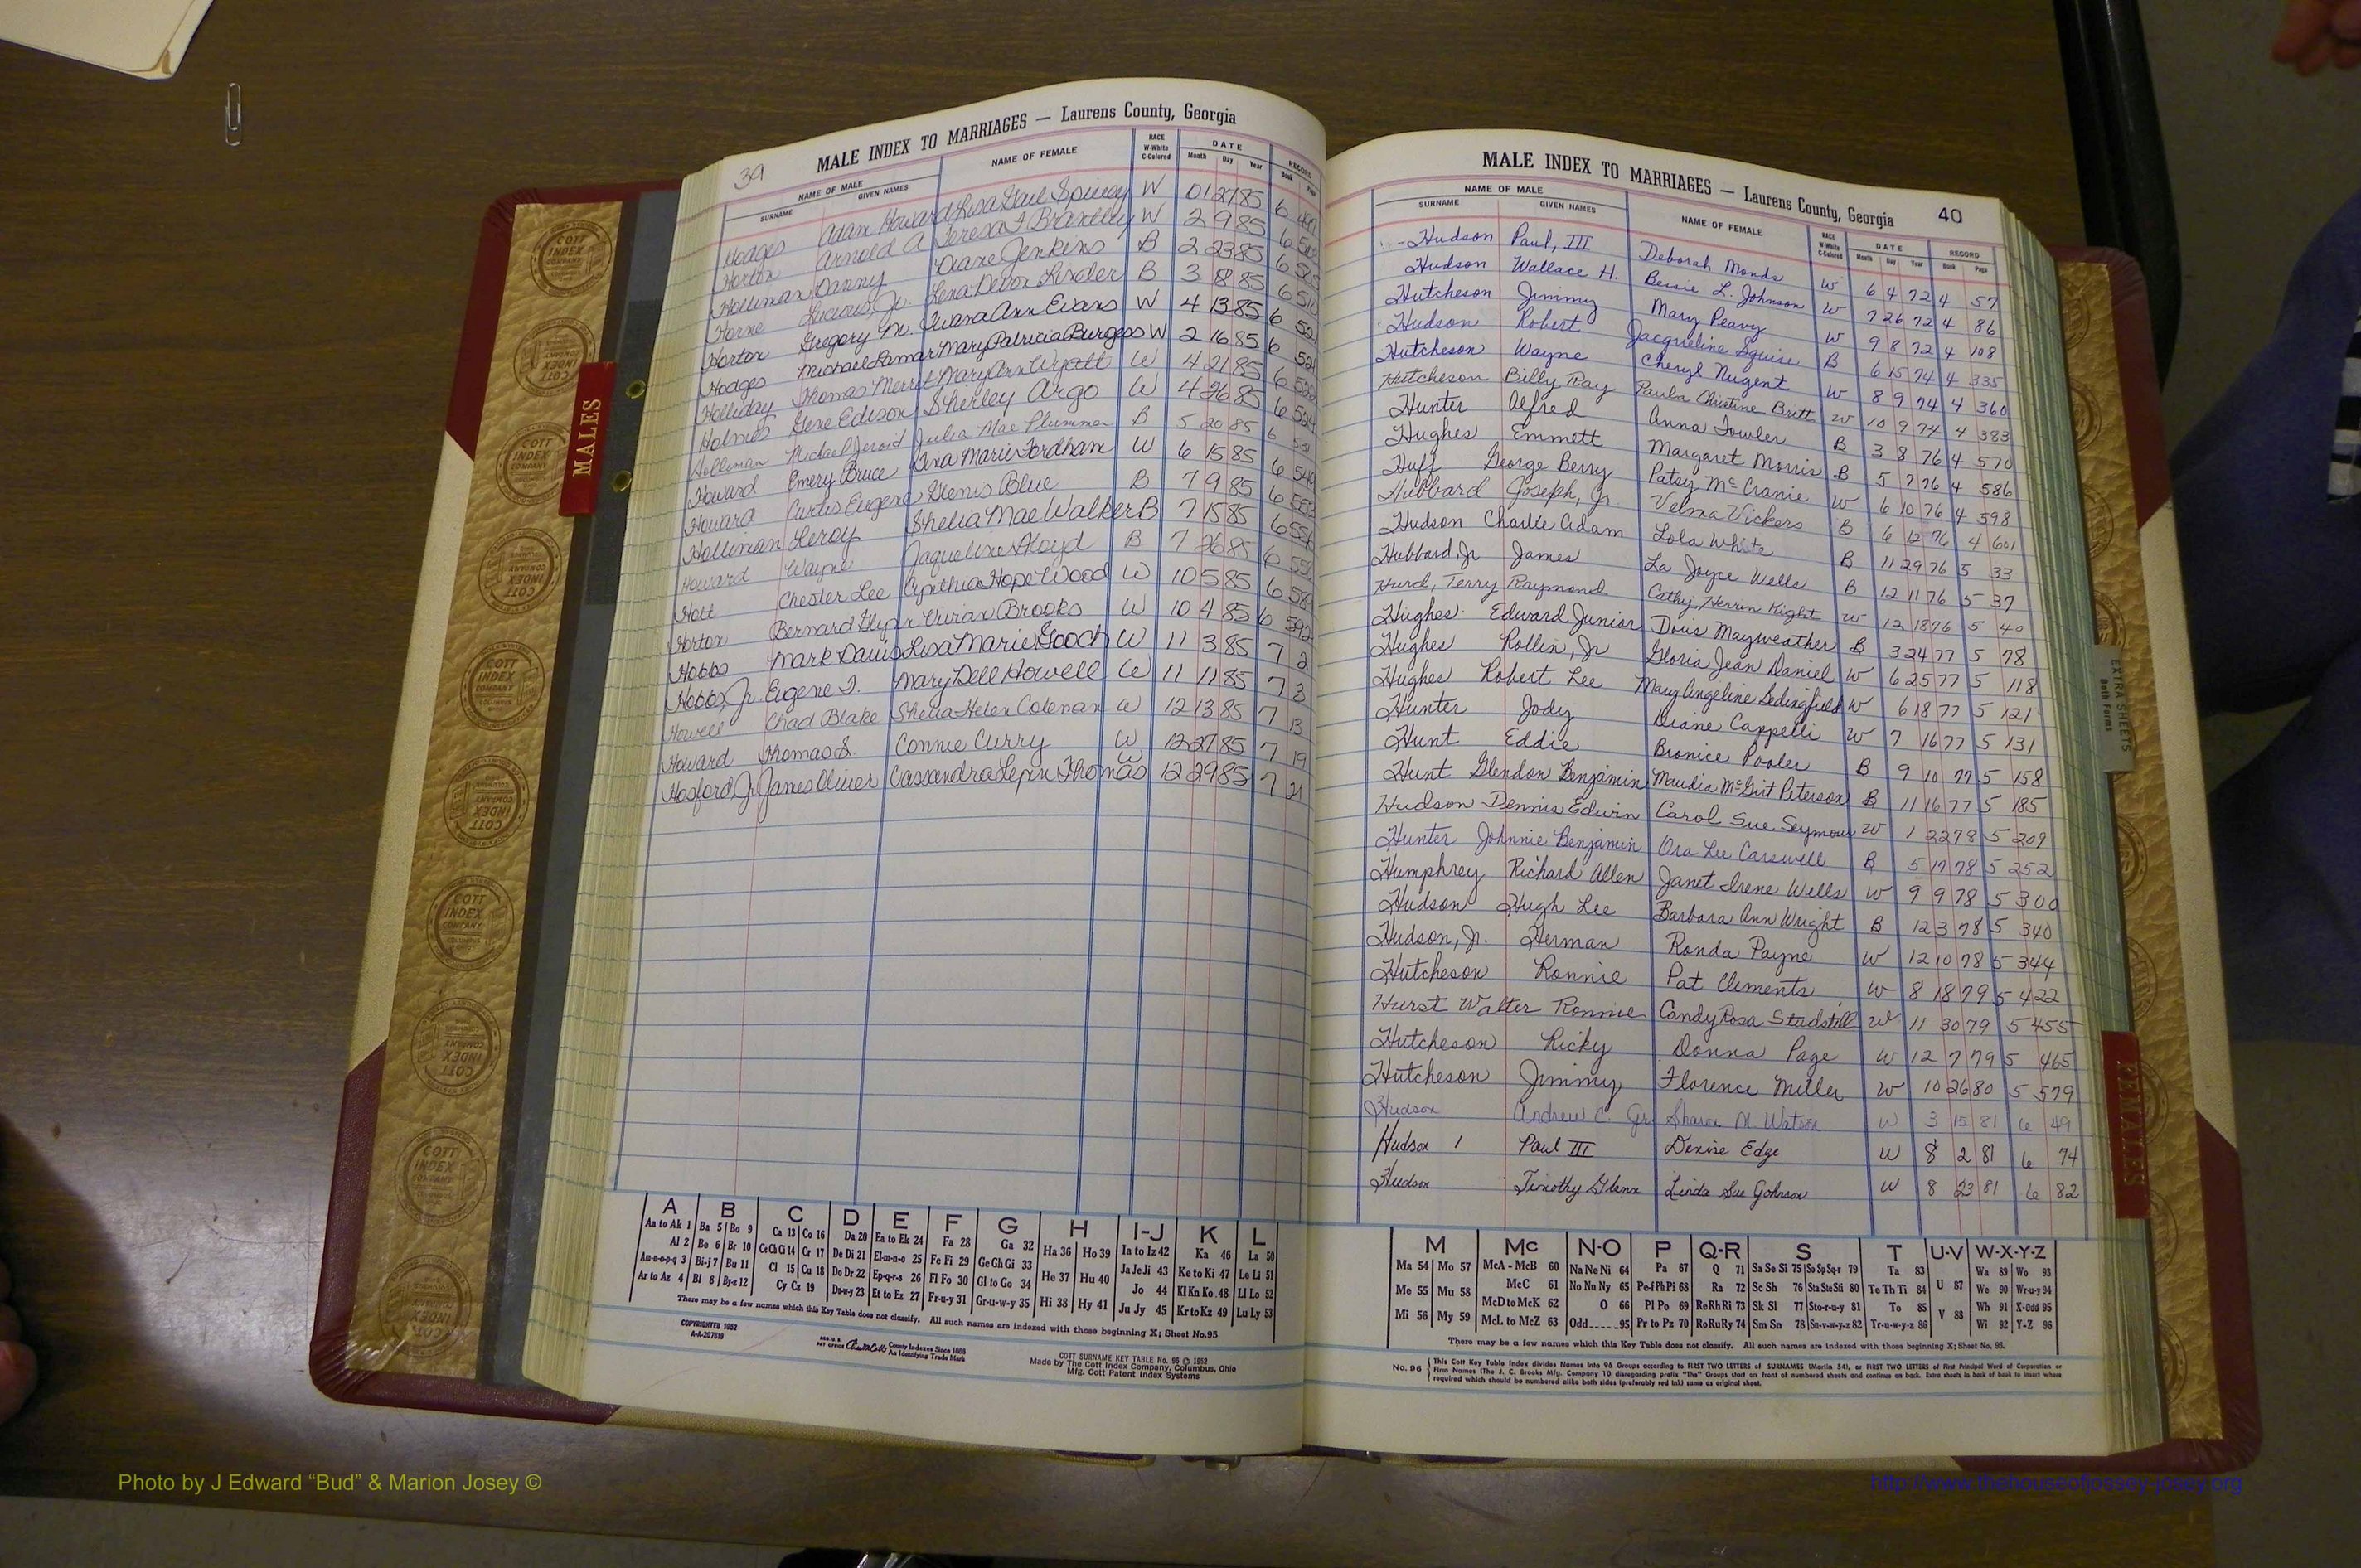 39
MALE INDEX TO MARRIAGES — Laurens County, Georgia
NAME OF MALE NAME OF FEMALE RACE W-White C-Colored DATE RECORD
SURNAME GIVEN NAMES Month Day Year Book Page
Hodges Alan Howard Lisa Gail Spivey W 01 27 85 6
Horton Arnold A Teresa F Brantley W 2 9 85 6
Holliman Danny Diane Jenkins B 2 23 85 6
Horne Lucious, Jr. Lena Devon Linder B 3 8 85 6 510
Horton Gregory M. Twana Ann Evans W 4 13 85 6
Hodges Michael Lamar Mary Patricia Burgess W 2 16 85 6
Holliday Thomas Merrit Mary Ann Wyatt W 4 21 85 6
Holmes Gene Edison Sherley Argo W 4 26 85 6
Holliman Michael Jeroid Julia Mae Plummer B 5 20 85 6
Howard Emery Bruce Tina Marie Fordham W 6 15 85 6
Howard Curtis Eugene Glenis Blue B 7 9 85 6
Holliman Leroy Shelia Mae Walker B 7 15 85 6
Howard Wayne Jaqueline Floyd B 7 26 85 6
Hott Chester Lee Cynthia Hope Wood W 10 5 85 6
Horton Bernard Glynn Vivian Brooks W 10 4 85 6 592
Hobbs Mark Davis Lisa Marie Gooch W 11 3 85 7 2
Hobbs, Jr. Eugene T. Mary Dell Howell W 11 11 85 7 3
Howell Chad Blake Shelia Helen Coleman W 12 13 85 7 13
Howard Thomas S. Connie Curry W 12 27 85 7 19
Hosford, Jr James Oliver Cassandra Lepin Thomas W 12 29 85 7 21
A B C D E F G H I-J K L
Aa to Ak 1 Ba 5 Bo 9 Ca 13 Co 16 Da 20 Ea to Ek 24 Fa 28 Ga 32 Ha 36 Ho 39 Ia to Iz 42 Ka 46 La 50
Al 2 Be 6 Br 10 Ce Ch Ci 14 Cr 17 De Di 21 El-m-n-o 25 Fe Fi 29 Ge Gh Gi 33 He 37 Hu 40 Ja Je Ji 43 Ke to Ki 47 Le Li 51
Am-n-o-p-q 3 Bi-j 7 Bu 11 Cl 15 Cu 18 Do Dr 22 Ep-q-r-s 26 Fl Fo 30 Gl to Go 34 Hi 38 Hy 41 Jo 44 Kl Kn Ko 48 Ll Lo 52
Ar to Az 4 Bl 8 By-z 12 Cy Cz 19 Du-w-y 23 Et to Ez 27 Fr-u-y 31 Gr-u-w-y 35 Ju Jy 45 Kr to Kz 49 Lu Ly 53
There may be a few names which this Key Table does not classify. All such names are indexed with those beginning X; Sheet No. 95
COPYRIGHTED 1952
A-A-207619
County Indexes Since 1888
An Identifying Trade Mark
COTT SURNAME KEY TABLE No. 96 © 1952
Made by The Cott Index Company, Columbus, Ohio
Mfg. Cott Patent Index Systems
MALE INDEX TO MARRIAGES — Laurens County, Georgia 40
NAME OF MALE NAME OF FEMALE RACE W-White C-Colored DATE RECORD
SURNAME GIVEN NAMES Month Day Year Book Page
Hudson Paul, III Deborah Monds W 6 4 72 4 57
Hudson Wallace H. Bessie L. Johnson W 7 26 72 4 86
Hutcheson Jimmy Mary Peavy W 9 8 72 4 108
Hudson Robert Jacqueline Squire B 6 15 74 4 335
Hutcheson Wayne Cheryl Nugent W 8 9 74 4 360
Hutcheson Billy Ray Paula Christine Britt W 10 9 74 4 383
Hunter Alfred Anna Fowler B 3 8 76 4 570
Hughes Emmett Margaret Morris B 5 7 76 4 586
Huff George Berry Patsy McCranie W 6 10 76 4 598
Hubbard Joseph, Jr. Velma Vickers B 6 12 76 4 601
Hudson Charlie Adam Lola White B 11 29 76 5 33
Hubbard, Jr James La Joyce Wells B 12 11 76 5 37
Hurd, Terry Raymond Cathy Herrin Hight W 12 18 76 5 40
Hughes Edward Junior Doris Mayweather B 3 24 77 5 78
Hughes Rollin, Jr Gloria Jean Daniel W 6 25 77 5 118
Hughes Robert Lee Mary Angeline Bedingfield W 6 18 77 5 121
Hunter Jody Diane Cappelli W 7 16 77 5 131
Hunt Eddie Bronice Pooler B 9 10 77 5 158
Hunt Glendon Benjamin Maudia McGirt Peterson B 11 16 77 5 185
Hudson Dennis Edwin Carol Sue Seymour W 1 22 78 5 209
Hunter Johnnie Benjamin Ora Lee Carswell B 5 17 78 5 252
Humphrey Richard Allen Janet Irene Wells W 9 9 78 5 300
Hudson Hugh Lee Barbara Ann Wright B 12 3 78 5 340
Hudson, Jr. Herman Ronda Payne W 12 10 78 5 344
Hutcheson Ronnie Pat Clements W 8 18 79 5 422
Hurst Walter Ronnie Candy Rosa Studstill W 11 30 79 5 455
Hutcheson Ricky Donna Page W 12 7 79 5 465
Hutcheson Jimmy Florence Miller W 10 26 80 5 579
Hudson Andrew C. Jr. Sharon N. Watson W 3 15 81 6 49
Hudson Paul III Denise Edge W 8 2 81 6 74
Hudson Timothy Glenn Linda Sue Johnson W 8 23 81 6 82
M Mc N-O P Q-R S T U-V W-X-Y-Z
Ma 54 Mo 57 McA - McB 60 Na Ne Ni 64 Pa 67 Q 71 Sa Se Si 75 So Sp Sq-r 79 Ta 83 U 87 Wa 89 Wo 93
Me 55 Mu 58 McC 61 No Nu Ny 65 Pe-f Ph Pi 68 Ra 72 Sc Sh 76 Sta Ste Sti 80 Te Th Ti 84 We 90 Wr-u-y 94
Mi 56 My 59 McD to McK 62 O 66 Pl Po 69 Re Rh Ri 73 Sk Sl 77 Sto-r-u-y 81 To 85 V 88 Wh 91 X-Odd 95
McL to McZ 63 Odd 95 Pr to Pz 70 Ro Ru Ry 74 Sm Sn 78 Su-v-w-y-z 82 Tr-u-w-y-z 86 Wi 92 Y-Z 96
There may be a few names which this Key Table does not classify. All such names are indexed with those beginning X; Sheet No. 95.
No. 96 This Cott Key Table Index divides Names into 96 Groups according to FIRST TWO LETTERS of SURNAMES (Martin 54), or FIRST TWO LETTERS of First Principal Word of Corporation or
Firm Names (The J. C. Brooks Mfg. Company 10 disregarding prefix "The" Groups start on front of numbered sheets and continue on back. Extra sheets in back of book to insert where
required which should be numbered alike both sides (preferably red ink) same as original sheet.
MALES
FEMALES
EXTRA SHEETS
Both Forms
COTT INDEX COMPANY
Photo by J Edward “Bud” & Marion Josey ©
http://www.thehouseofjossey-josey.org